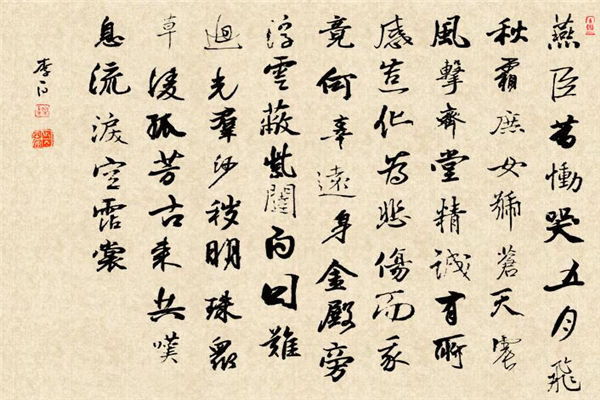 燕臣昔慟哭五月飛
秋霜庶女號蒼天震
風擊齊堂精誠有所
感造化為悲傷而我
竟何辜遠身金殿旁
浮雲蔽紫闥白日難
迴光羣沙穢明珠眾
草凌孤芳古來共嘆
息流淚空霑裳
李白